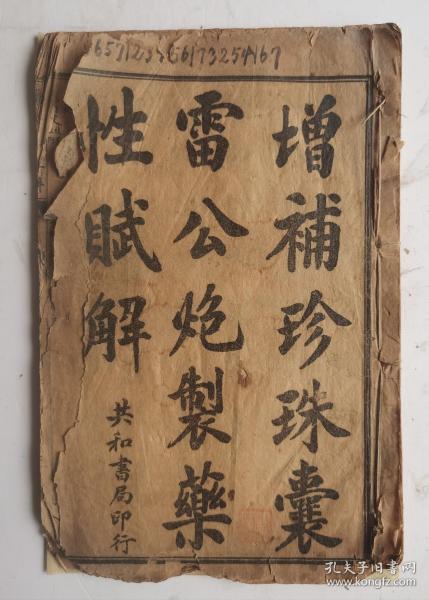 增補珍珠囊
雷公炮製藥
性賦解
共和書局印行
孔夫子旧书网
www.kongfz.com